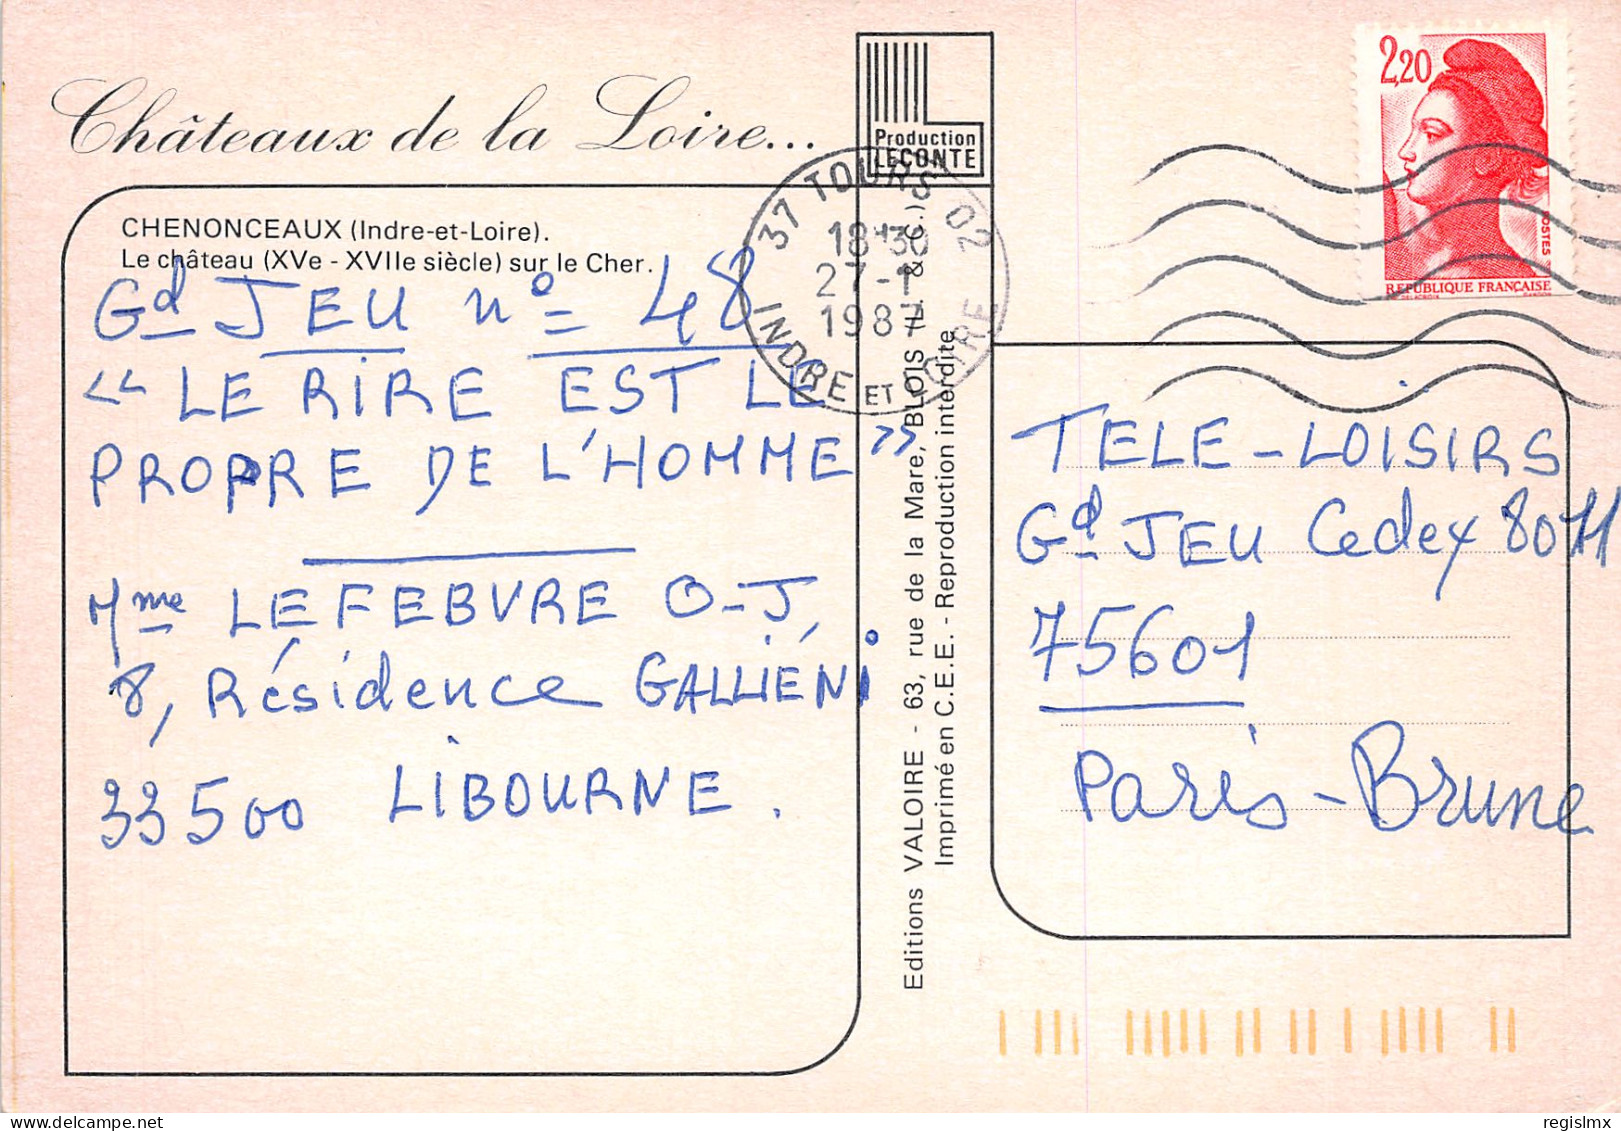 Châteaux de la Loire...
Production
LECONTE
2,20
POSTES
RÉPUBLIQUE FRANÇAISE
37 TOURS 02
18H30
27-1
1987
INDRE ET LOIRE
CHENONCEAUX (Indre-et-Loire).
Le château (XVe - XVIIe siècle) sur le Cher.
Gd JEU n° = 48
“ LE RIRE EST LE
PROPRE DE L'HOMME ”
Mme LEFEBVRE O-J,
8, Résidence GALLIÉNI
33500 LIBOURNE.
Editions VALOIRE - 63, rue de la Mare, BLOIS (L. & C.)
Imprimé en C.E.E. - Reproduction interdite
TELE-LOISIRS
Gd JEU Cedex 8011
75601
Paris-Brune
regislmx